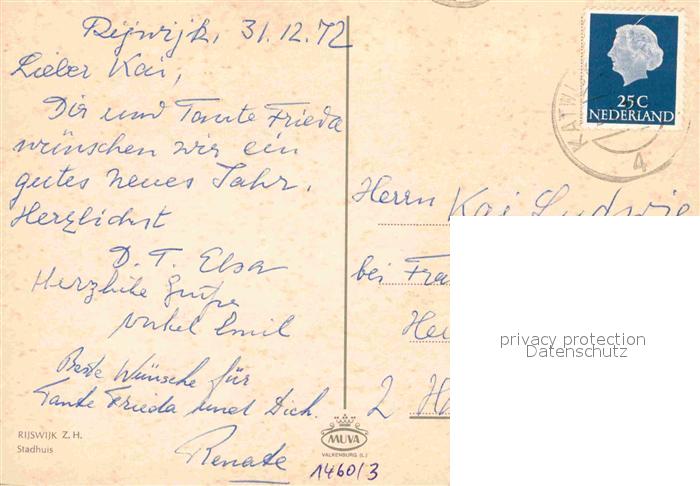 Rijwijk, 31.12.72
Lieber Kai,
Dir und Tante Frieda
wünschen wir ein
gutes neues Jahr.
Herzlichst
D. T. Elsa
Herzliche Grüße
Onkel Emil
Beste Wünsche für
Tante Frieda und Dich.
Renate
RIJSWIJK Z. H.
Stadhuis
MUVA
VALKENBURG (L.)
1460/3
25C
NEDERLAND
4
Herrn Kai Ludwig
bei
2
privacy protection
Datenschutz